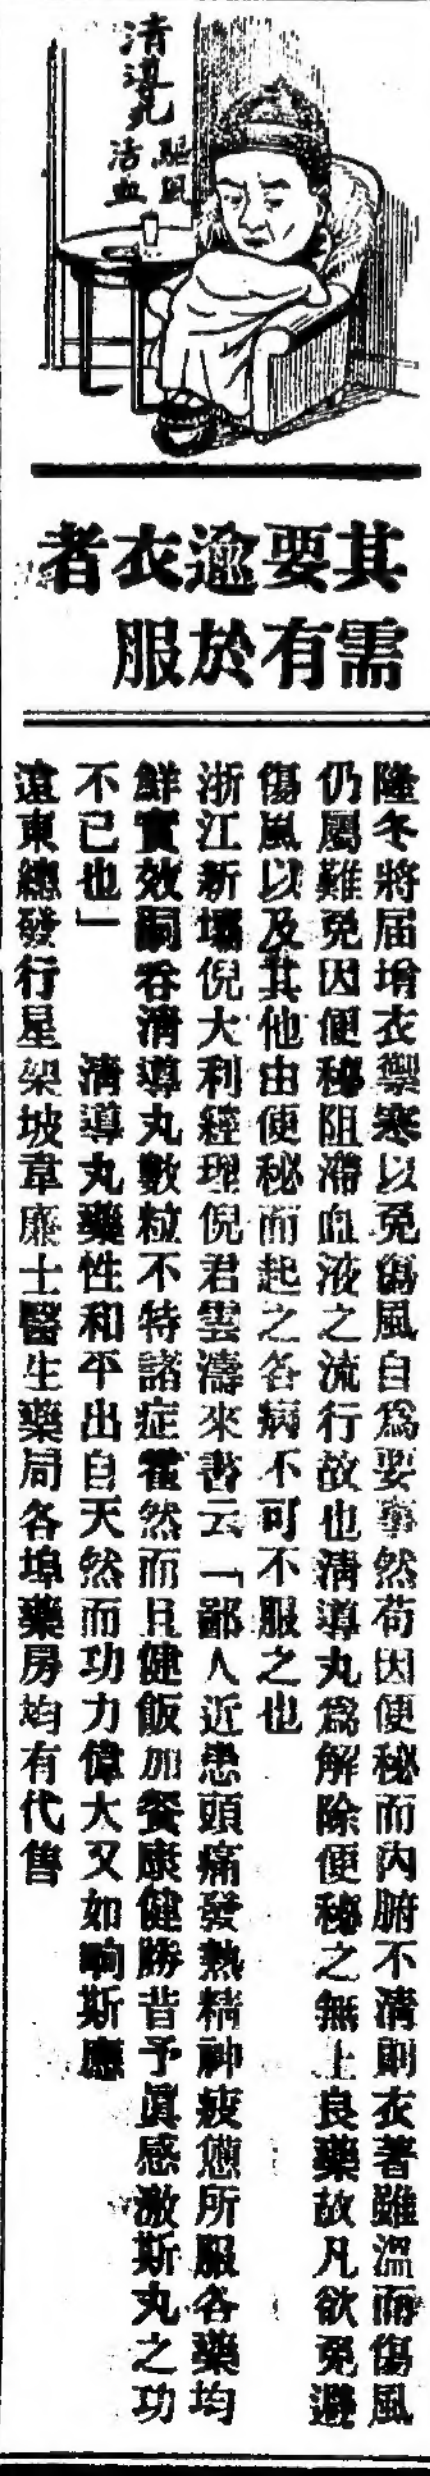 清導丸
驅風
活血
其需
要有
逾於
衣服
者
隆冬將屆增衣禦寒以免傷風自爲要事然苟因便秘而內腑不清則衣著雖溫而傷風
仍屬難免因便秘阻滯血液之流行故也清導丸爲解除便秘之無上良藥故凡欲免避
傷風以及其他由便秘而起之各病不可不服之也
浙江新壩倪大利經理倪君雲濤來書云「鄙人近患頭痛發熱精神疲憊所服各藥均
鮮實效嗣吞清導丸數粒不特諸症霍然而且健飯加餐康健勝昔予眞感激斯丸之功
不已也」 清導丸藥性和平出自天然而功力偉大又如响斯應
遠東總發行星架坡韋廉士醫生藥局各埠藥房均有代售